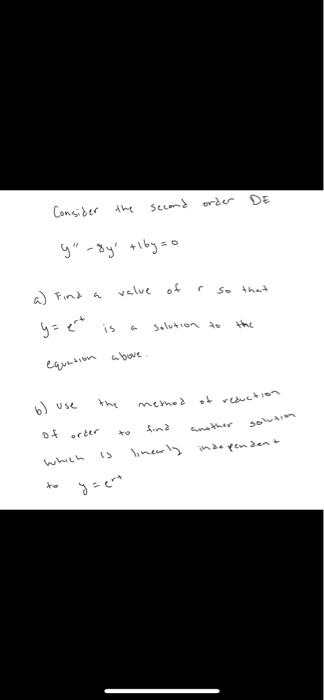 Consider the second order DE
y'' - 8y' + 16y = 0
a) Find a value of r so that
y = e^rt is a solution to the
equation above.
b) Use the method of reduction
of order to find another solution
which is linearly independent
to y = e^rt